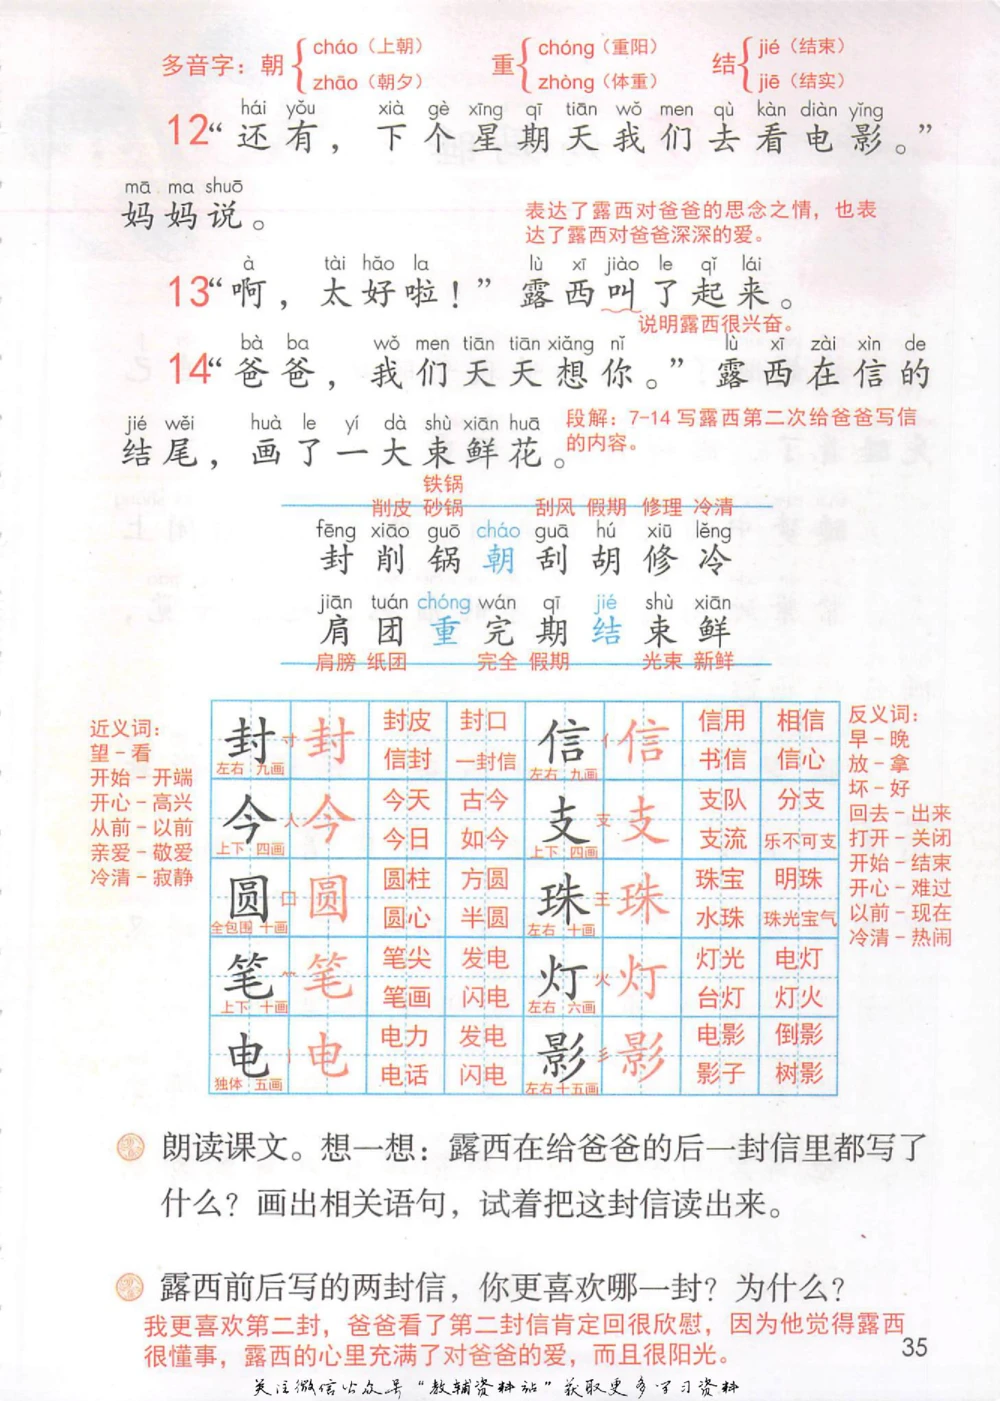 多音字：朝 cháo（上朝） 重 chóng（重阳） 结 jié（结束）
zhāo（朝夕） zhòng（体重） jiē（结实）
hái yǒu xià gè xīng qī tiān wǒ men qù kàn diàn yǐng
12“还有，下个星期天我们去看电影。”
mā ma shuō
妈妈说。
表达了露西对爸爸的思念之情，也表
达了露西对爸爸深深的爱。
à tài hǎo la lù xī jiào le qǐ lái
13“啊，太好啦！”露西叫了起来。
说明露西很兴奋。
bà ba wǒ men tiān tiān xiǎng nǐ lù xī zài xìn de
14“爸爸，我们天天想你。”露西在信的
jié wěi huà le yí dà shù xiān huā
结尾，画了一大束鲜花。
段解：7-14 写露西第二次给爸爸写信
的内容。
铁锅
削皮 砂锅 刮风 假期 修理 冷清
fēng xiāo guō cháo guā hú xiū lěng
封 削 锅 朝 刮 胡 修 冷
jiān tuán chóng wán qī jié shù xiān
肩 团 重 完 期 结 束 鲜
肩膀 纸团 完全 假期 光束 新鲜
近义词：
望－看
开始－开端
开心－高兴
从前－以前
亲爱－敬爱
冷清－寂静
封 寸 封 封皮 封口 信 亻 信 信用 相信
左右 九画 信封 一封信 左右 九画 书信 信心
今 人 今 今天 古今 支 支 支 支队 分支
上下 四画 今日 如今 上下 四画 支流 乐不可支
圆 口 圆 圆柱 方圆 珠 王 珠 珠宝 明珠
全包围 十画 圆心 半圆 左右 十画 水珠 珠光宝气
笔 𥫗 笔 笔尖 发电 灯 火 灯 灯光 电灯
上下 十画 笔画 闪电 左右 六画 台灯 灯火
电 丨 电 电力 发电 影 彡 影 电影 倒影
独体 五画 电话 闪电 左右 十五画 影子 树影
反义词：
早－晚
放－拿
坏－好
回去－出来
打开－关闭
开始－结束
开心－难过
以前－现在
冷清－热闹
朗读课文。想一想：露西在给爸爸的后一封信里都写了
什么？画出相关语句，试着把这封信读出来。
露西前后写的两封信，你更喜欢哪一封？为什么？
我更喜欢第二封，爸爸看了第二封信肯定回很欣慰，因为他觉得露西
很懂事，露西的心里充满了对爸爸的爱，而且很阳光。
35
关注微信公众号“教辅资料站”获取更多学习资料